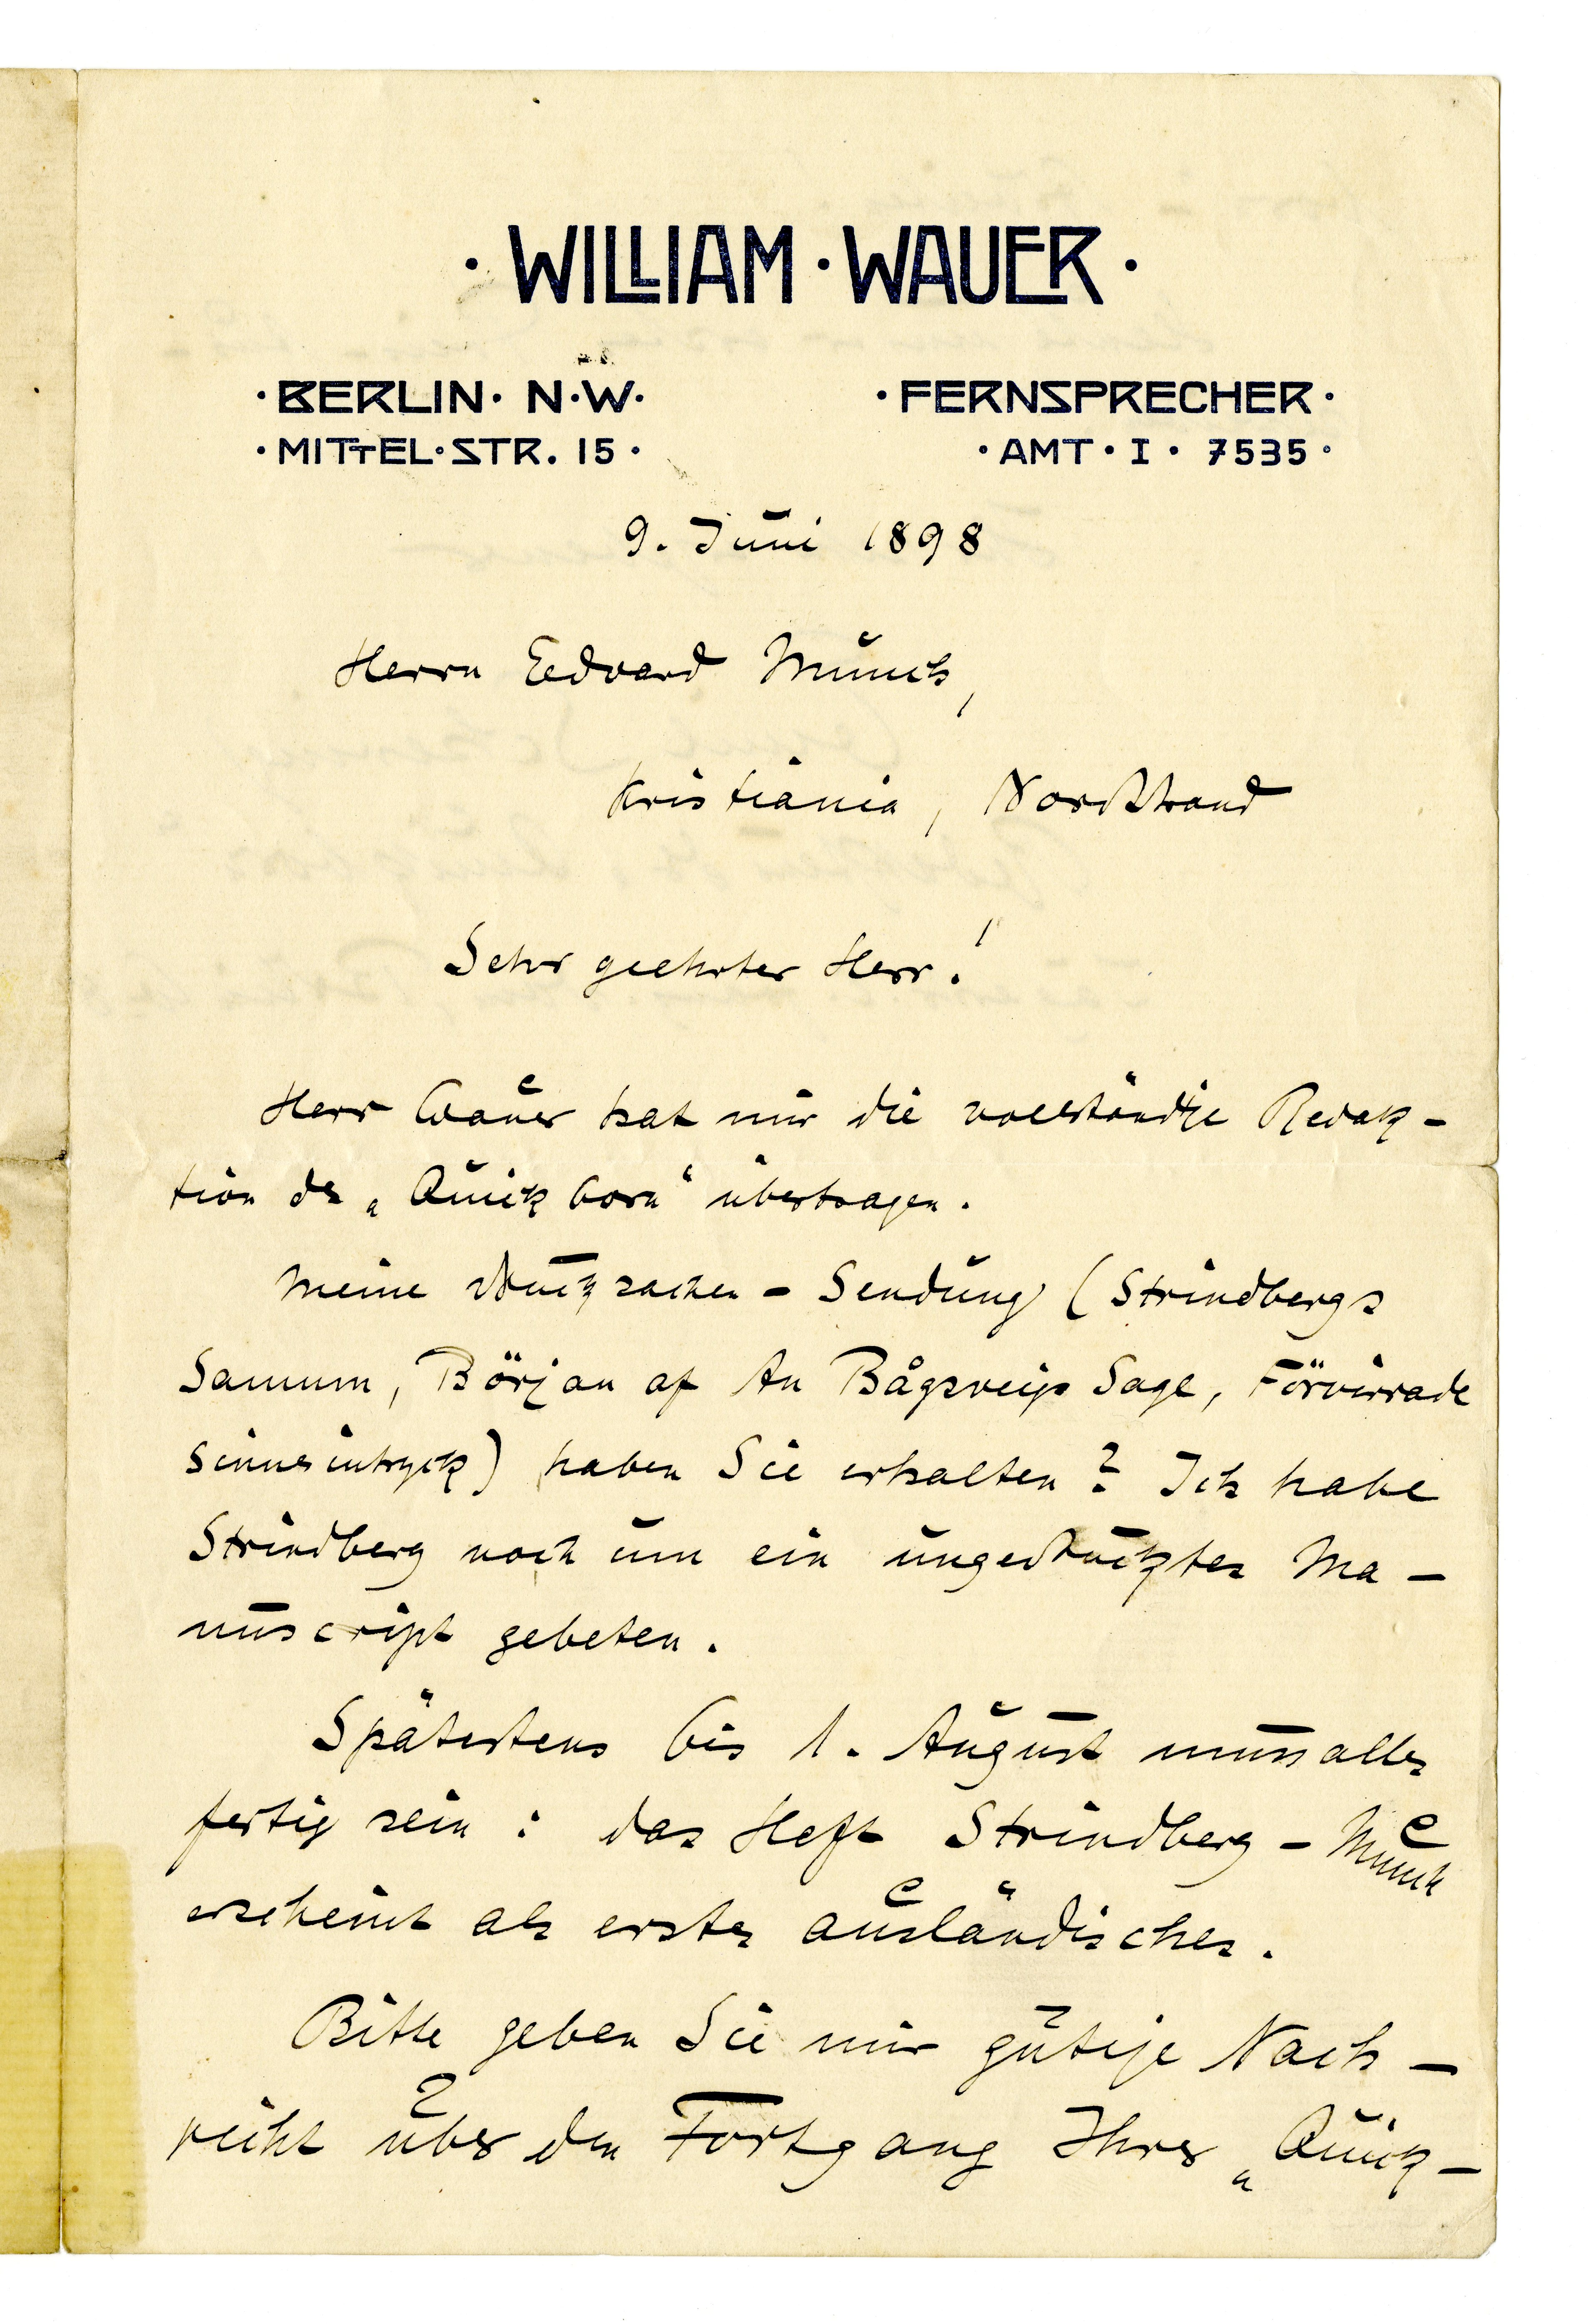 · WILLIAM · WAUER ·
· BERLIN · N·W·
· MITTEL·STR. 15 ·
· FERNSPRECHER ·
· AMT · I · 7535 ·
9. Juni 1898
Herrn Edvard Munch,
Kristiania, Nordstrand
Sehr geehrter Herr!
Herr Wauer hat mir die vollständige Redak-
tion des „Quickborn“ übertragen.
Meine Drucksachen-Sendung (Strindbergs
Samum, Början af An Bågsveigs Saga, Förvirrade
sinnesintryck) haben Sie erhalten? Ich habe
Strindberg noch um ein ungedrucktes Ma-
nuscript gebeten.
Spätestens bis 1. August muss alles
fertig sein: das Heft Strindberg-Munch
erscheint als erstes ausländisches.
Bitte geben Sie mir gütige Nach-
richt über den Fortgang Ihrer „Quick-